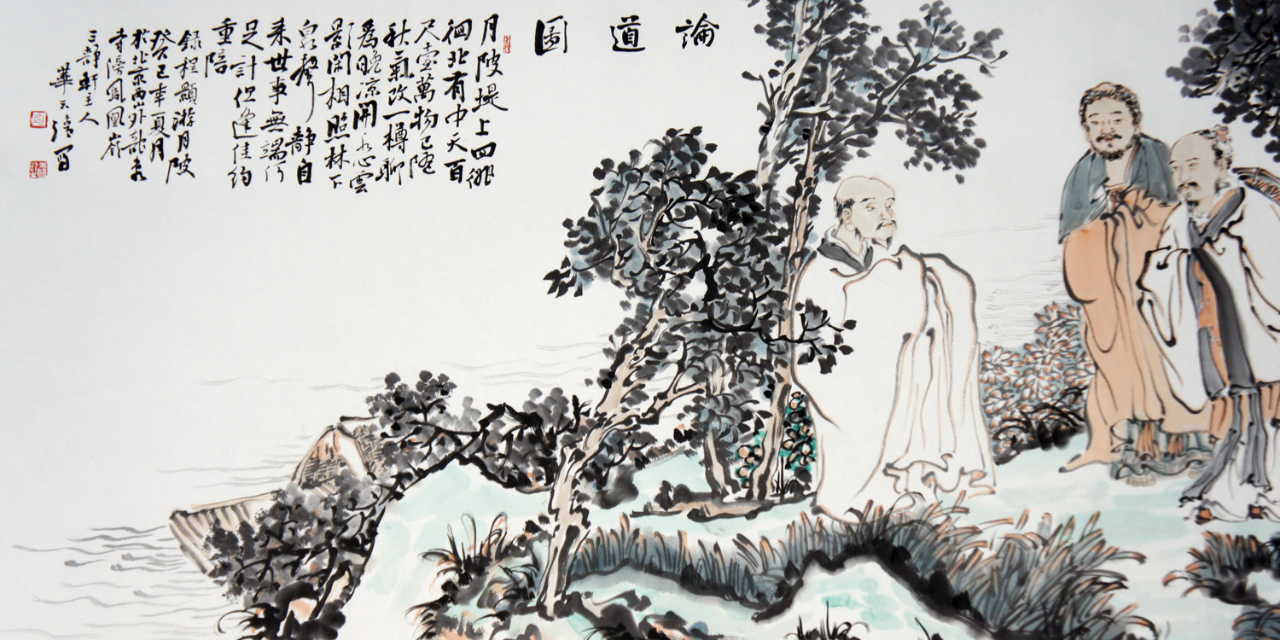 論道圖
月陂堤上四徘
徊北有中天百
尺臺萬物已隨
秋氣改一樽聊
為晚涼開水心雲
影閑相照林下
泉聲靜自
來世事無端何
足計但逢佳約
重陪
錄程顥游月陂
癸巳年夏月
於北京西山外龍泉
寺傍鳳凰嶺
三靜軒主人